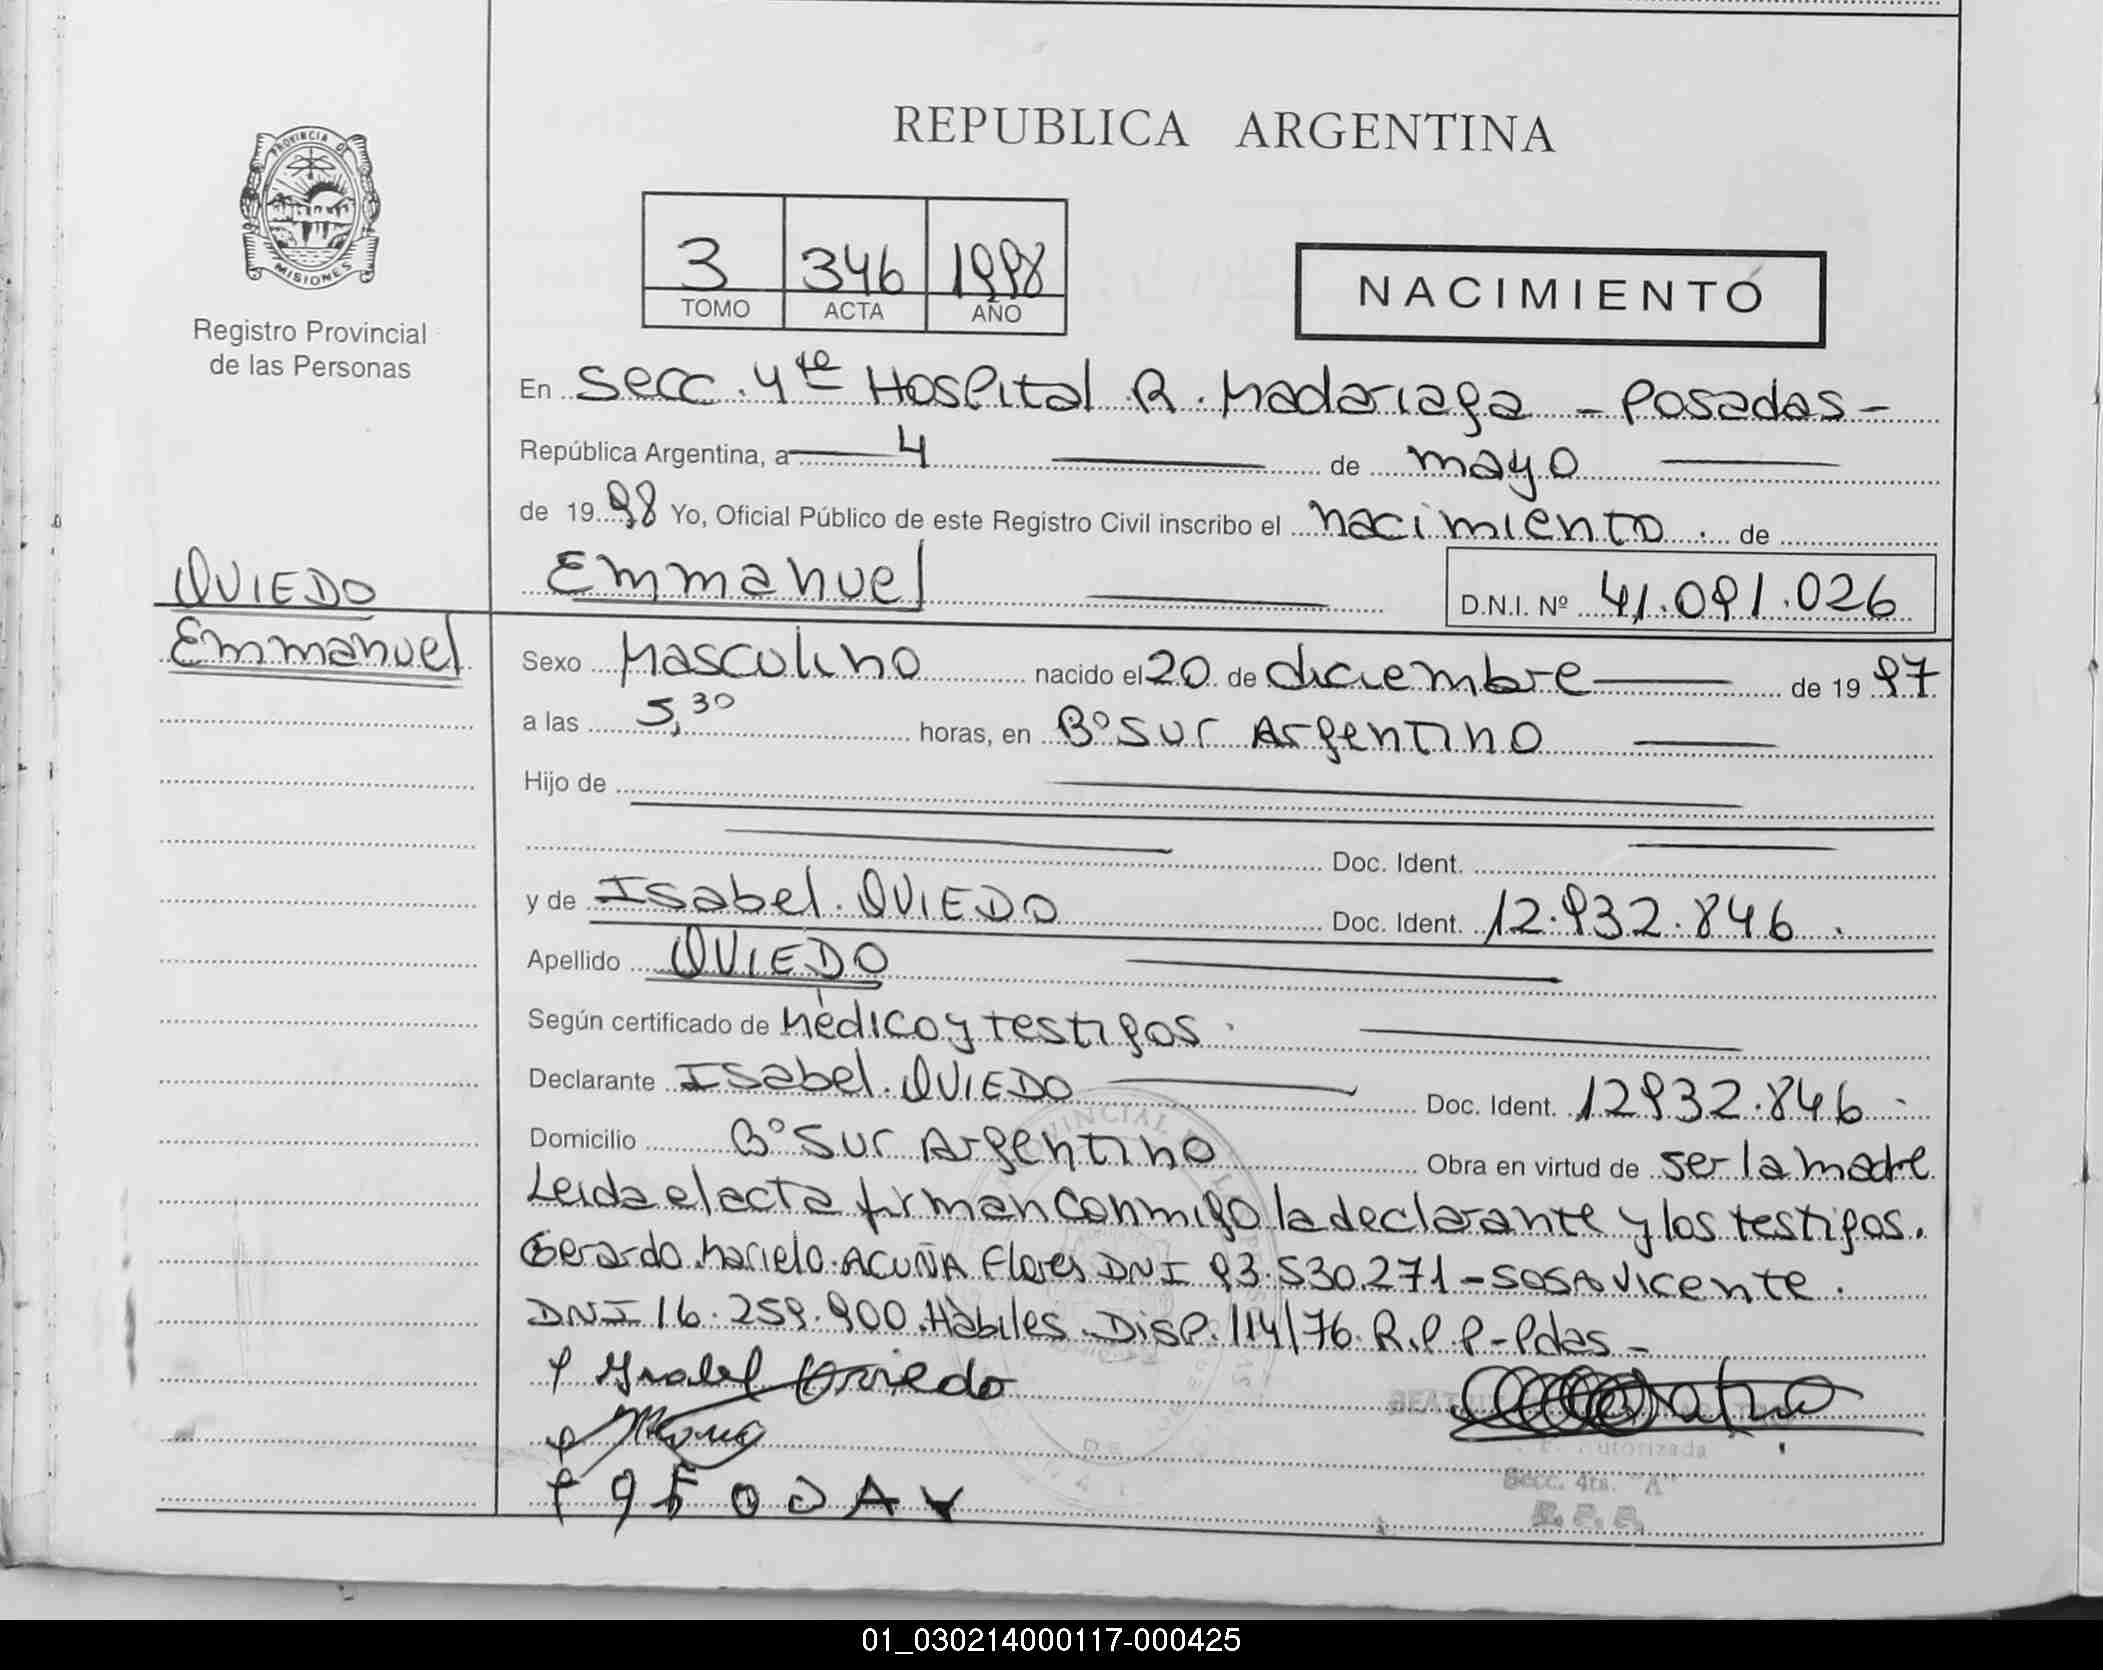 PROVINCIA DE
MISIONES
Registro Provincial
de las Personas
REPUBLICA ARGENTINA
3 346 1998
TOMO ACTA AÑO
NACIMIENTO
En Secc. 4ta Hospital R. Madariaga - Posadas -
República Argentina, a 4 de mayo
de 1998 Yo, Oficial Público de este Registro Civil inscribo el nacimiento. de
Emmanuel D.N.I. Nº 41.091.026
OVIEDO
Emmanuel
Sexo Masculino nacido el 20 de diciembre de 1997
a las 5,30 horas, en Bº Sur Argentino
Hijo de
Doc. Ident.
y de Isabel. OVIEDO Doc. Ident. 12.932.846.
Apellido OVIEDO
Según certificado de Médico y testigos.
Declarante Isabel. OVIEDO Doc. Ident. 12932.846.
Domicilio Bº Sur Argentino Obra en virtud de ser la madre
Leida el acta firman conmigo la declarante y los testigos.
Gerardo. Marielo. ACUÑA Flores DNI 93.530.271 - SOSA Vicente.
DNI 16.259.900. Hàbiles. Disp. 114/76. R.P.P - Pdas -
Ysabel Oviedo
Autorizada
Secc. 4ta. "A"
R. P. P.
01_030214000117-000425